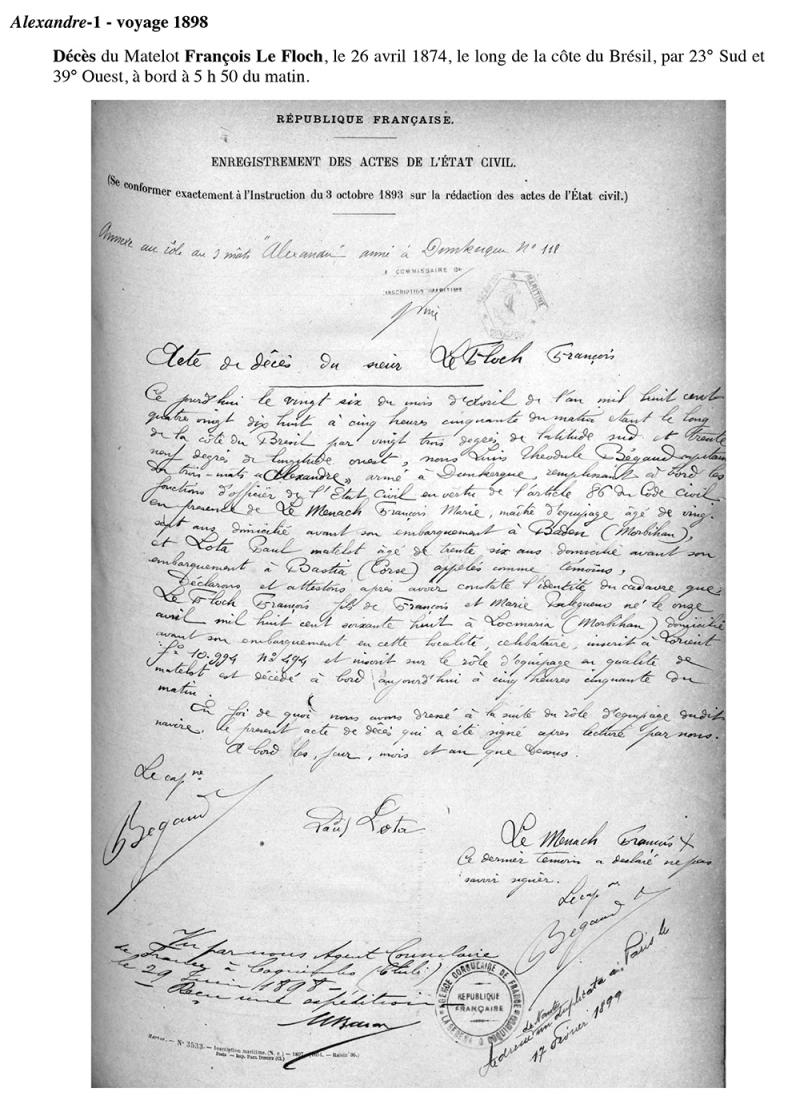 Alexandre-1 - voyage 1898
Décès du Matelot François Le Floch, le 26 avril 1874, le long de la côte du Brésil, par 23° Sud et
39° Ouest, à bord à 5 h 50 du matin.
RÉPUBLIQUE FRANÇAISE.
ENREGISTREMENT DES ACTES DE L'ÉTAT CIVIL.
(Se conformer exactement à l'Instruction du 3 octobre 1893 sur la rédaction des actes de l'État civil.)
Annexe au rôle du 3 mâts "Alexandre" armé à Dunkerque N° 118
COMMISSAIRE DE
INSCRIPTION MARITIME
Acte de décès du sieur Le Floch François
Ce jourd'hui le vingt six du mois d'Avril de l'an mil huit cent
quatre vingt dix huit à cinq heures cinquante du matin etant le long
de la côte du Bresil par vingt trois degrés de latitude sud et trente
neuf degrés de longitude ouest, nous Luis Theodule Bégaud capitaine
du trois-mats "Alexandre" armé à Dunkerque, remplissant à bord les
fonctions d'officier de l'Etat Civil en vertu de l'article 86 du Code civil
en presence de Le Menach François Marie, maître d'equipage âgé de vingt
sept ans domicilié avant son embarquement à Baden (Morbihan),
et Lota Paul matelot âgé de trente six ans domicilié avant son
embarquement à Bastia (Corse) appelés comme temoins,
Déclarons et attestons apres avoir constaté l'identité du cadavre que
Le Floch François fils de François et Marie né le onze
avril mil huit cent soixante huit à Locmaria (Morbihan) domicilié
avant son embarquement en cette localité, celibataire, inscrit à Lorient
f° 10.994 n° 494 et inscrit sur le rôle d'equipage en qualité de
matelot est décédé à bord aujourd'hui à cinq heures cinquante du
matin.
En foi de quoi nous avons dressé à la suite du rôle d'equipage dudit
navire, le present acte de décès qui a été signé apres lecture par nous.
A bord les, jour, mois et an que dessus.
Le cap ne
Begaud
Paul Lota
Le Menach François X
Ce dernier temoin a declaré ne pas
savoir signer.
Le cap ne
Begaud
Vu par nous Agent Consulaire
de France à Coquimbo (Chili)
le 29 Juin 1898
Reçu une expédition
AGENCE CONSULAIRE DE FRANCE
RÉPUBLIQUE
FRANÇAISE
LA SERENA & COQUIMBO
Adressé un duplicata à Paris le
17 février 1899
N° 3533. — Inscription maritime.